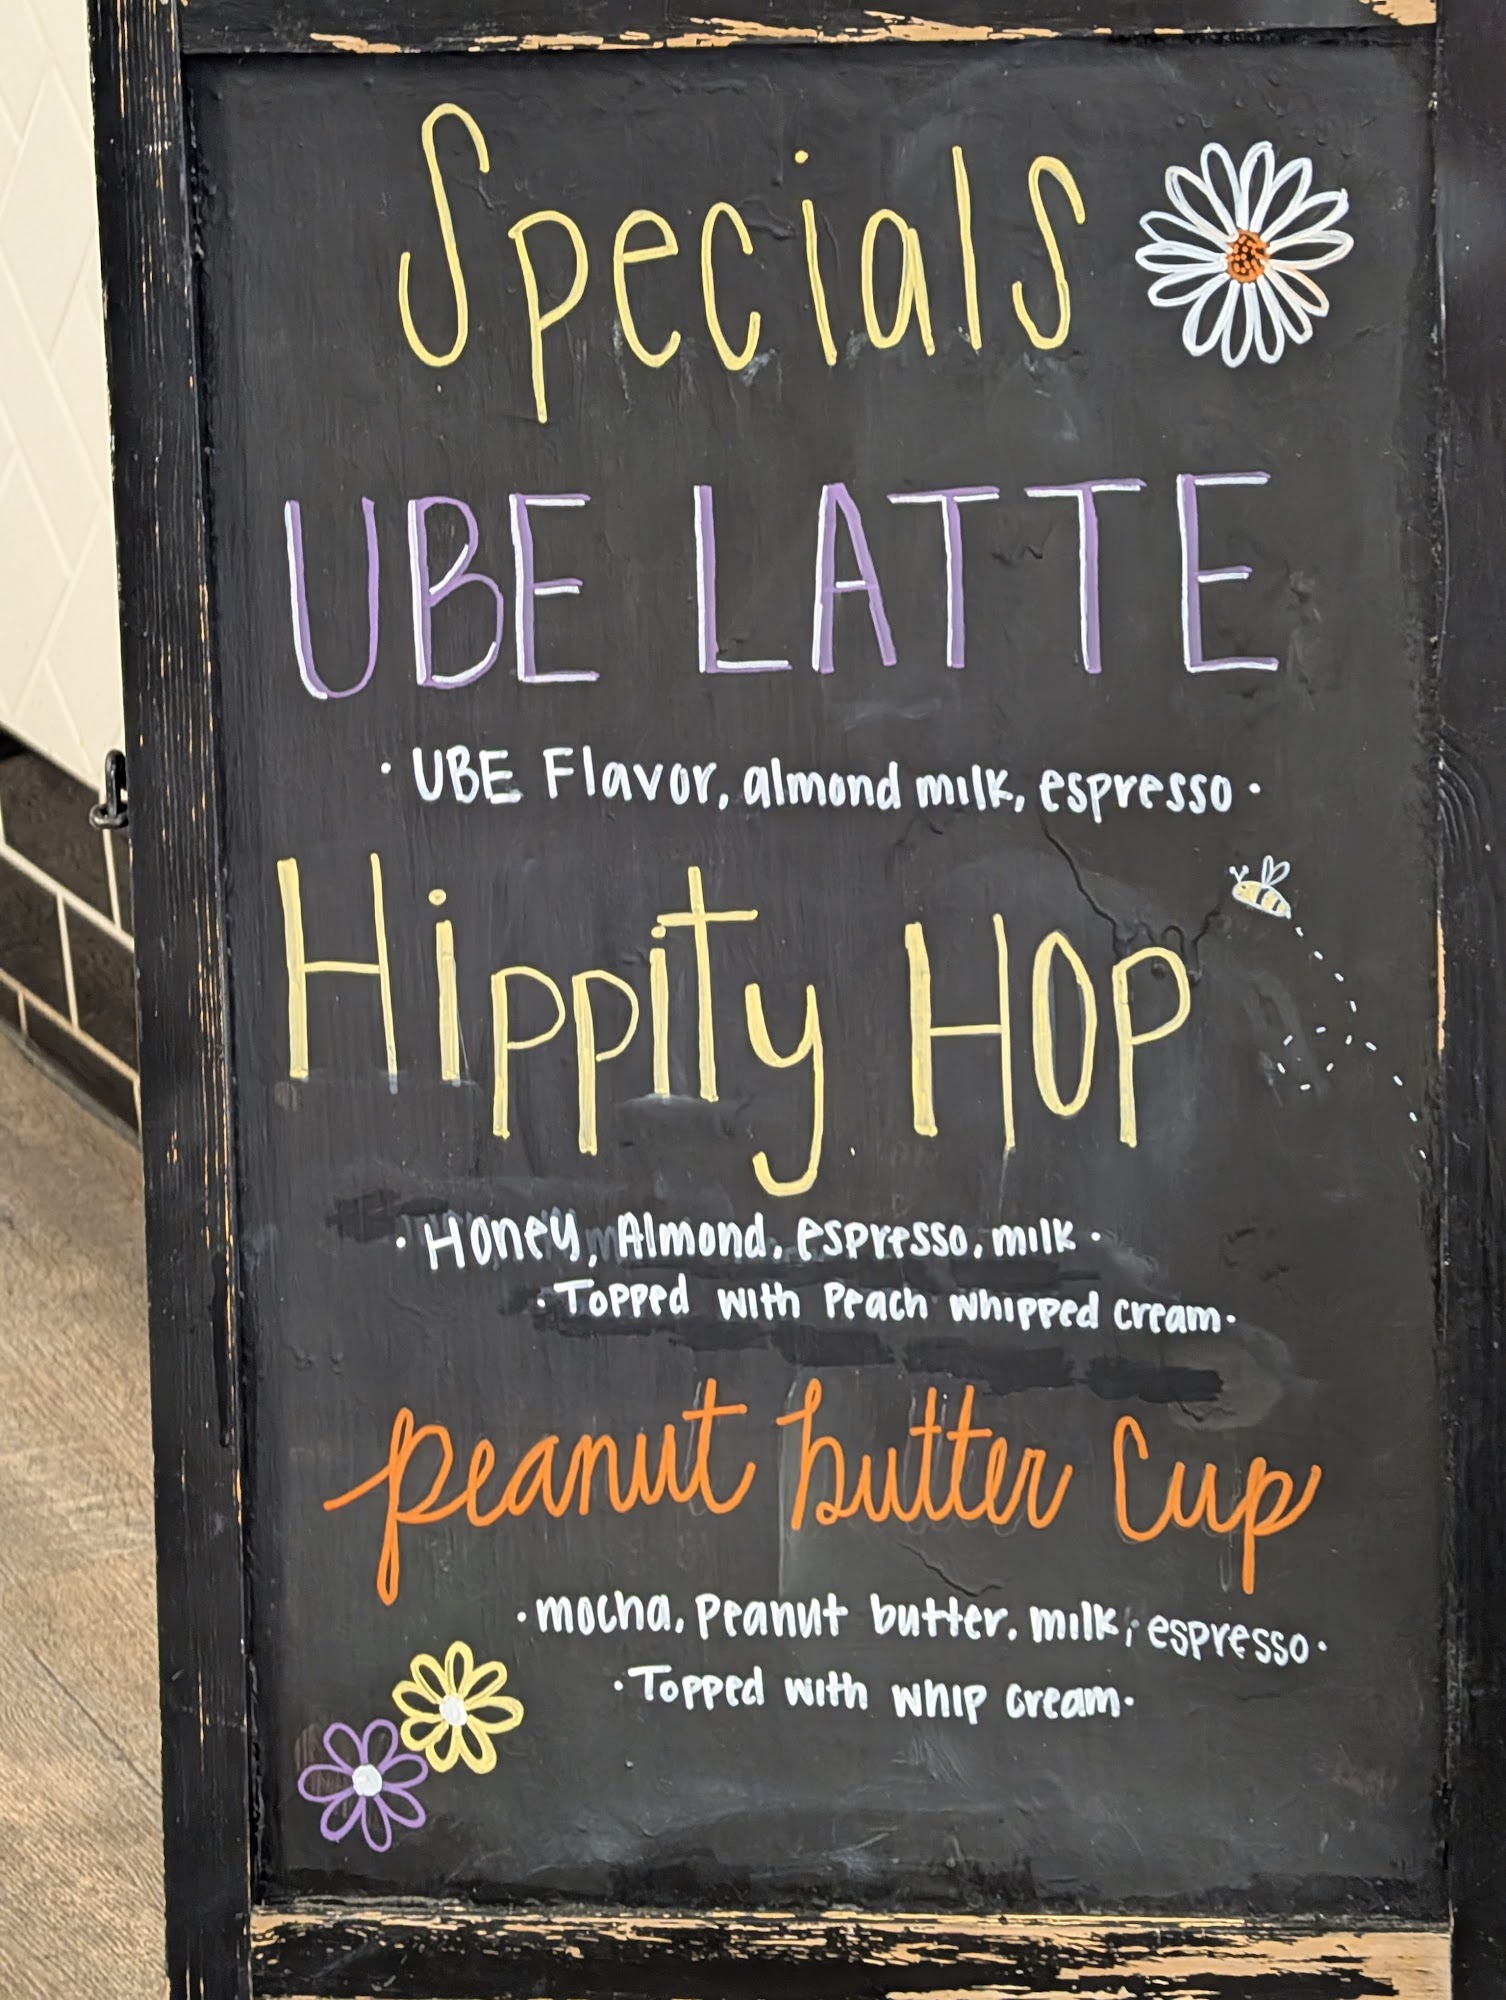 Specials
UBE LATTE
· UBE Flavor, almond milk, espresso ·
Hippity HOP
· Honey, Almond, espresso, milk ·
· Topped with Peach whipped cream ·
peanut butter cup
· mocha, Peanut butter, milk, espresso ·
· Topped with whip cream ·